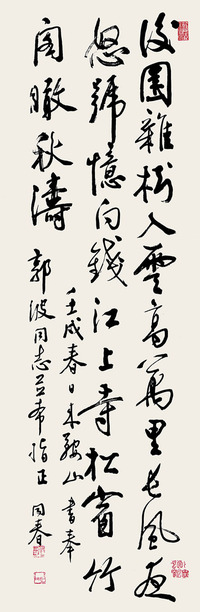 後園雜樹入雲高萬里長風夜
怒號憶向錢江上寺松窗竹
閣瞰秋濤
壬戌春日來鞍山書奉
郭波同志並希指正 同春